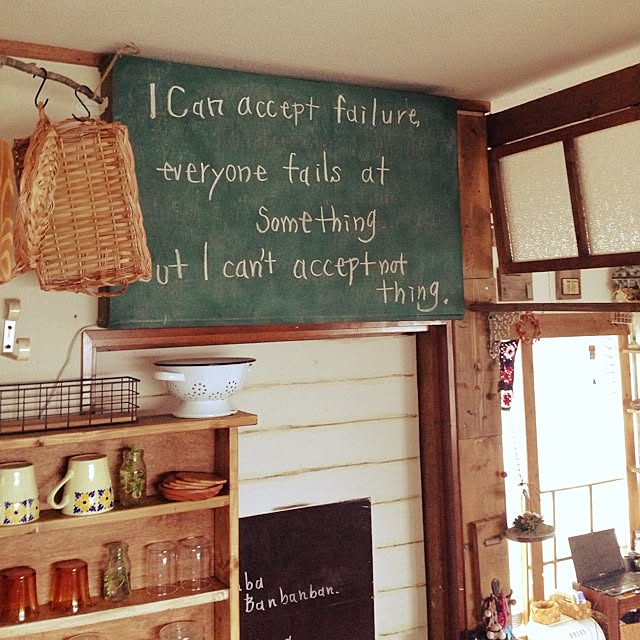 I Can accept failure,
everyone fails at
Something
but I can't accept not
thing.
ba
Banbanban.